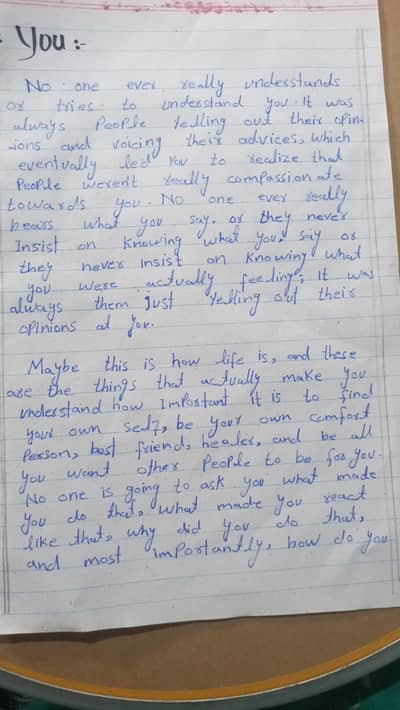 You :-
No one ever really understands
or tries to understand you. It was
always People Yelling out their opin-
-ions and voicing their advices, which
eventually led You to realize that
People weren't really compassionate
towards you. No one ever really
hears what you say, or they never
Insist on Knowing what you say or
they never insist on Knowing what
you were actually feeling; It was
always them just Yelling out their
opinions at You.
Maybe this is how life is, and these
are the things that actually make you
understand how Important it is to find
your own self, be your own Comfort
Person, best friend, healer, and be all
you want other People to be for you.
No one is going to ask you what made
you do that, what made you react
like that, why did you do that,
and most importantly, how do you